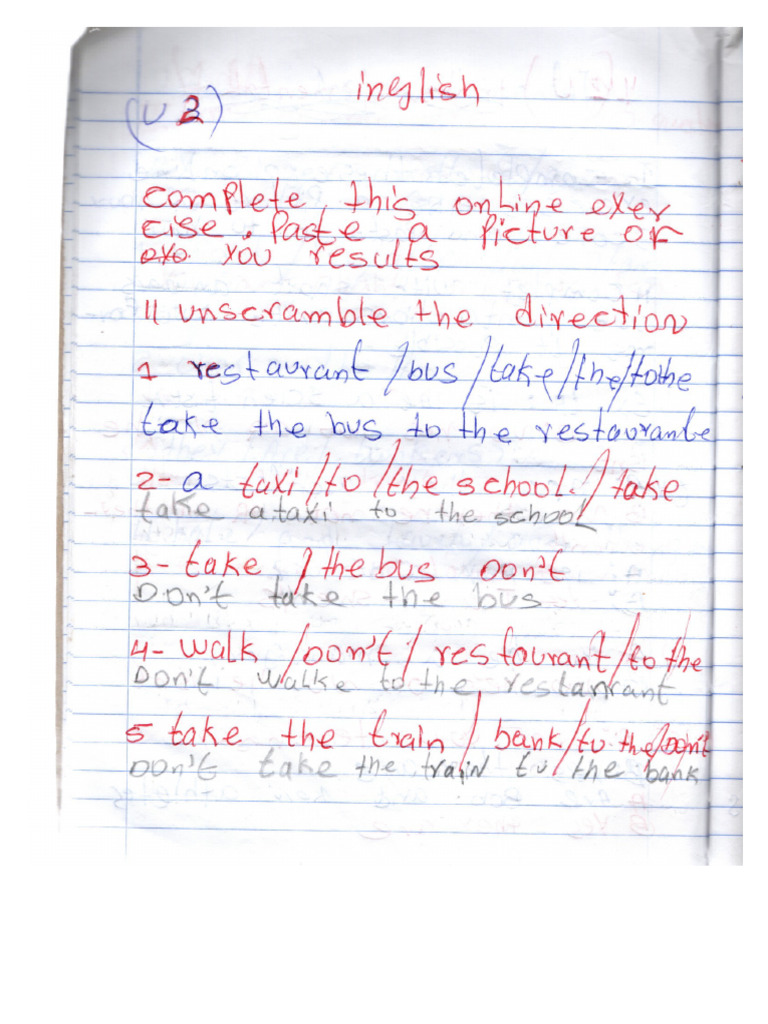 inglish
(U 2)
complete, this online exer
cise. Paste a picture of
exo you results
11 unscramble the direction
1 restaurant / bus / take / the / to the
take the bus to the restaurante
2- a taxi / to / the school. / take
take a taxi to the school
3- take / the bus Don't
Don't take the bus
4- walk / Don't / restaurant / to the
Don't walke to the restanrant
5 take the train / bank / to the / Don't
Don't take the train to / the bank